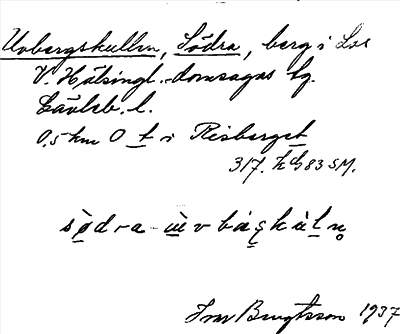 Uvbergskullen, Södra, berg i Los
V. Hälsingl. domsagas tg.
Gävleb. l.
0,5 km O t i Risberget
317. h 83 SM.
södra
Bengtsson 1937